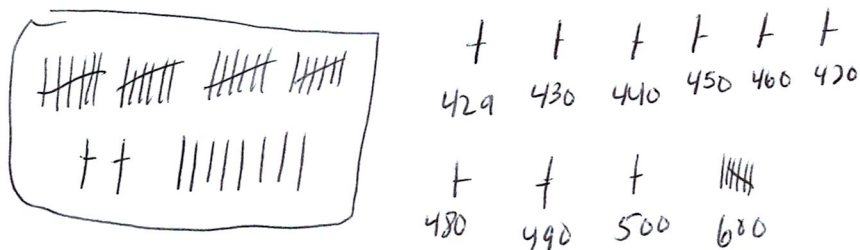 429 430 440 450 460 470
480 490 500 600